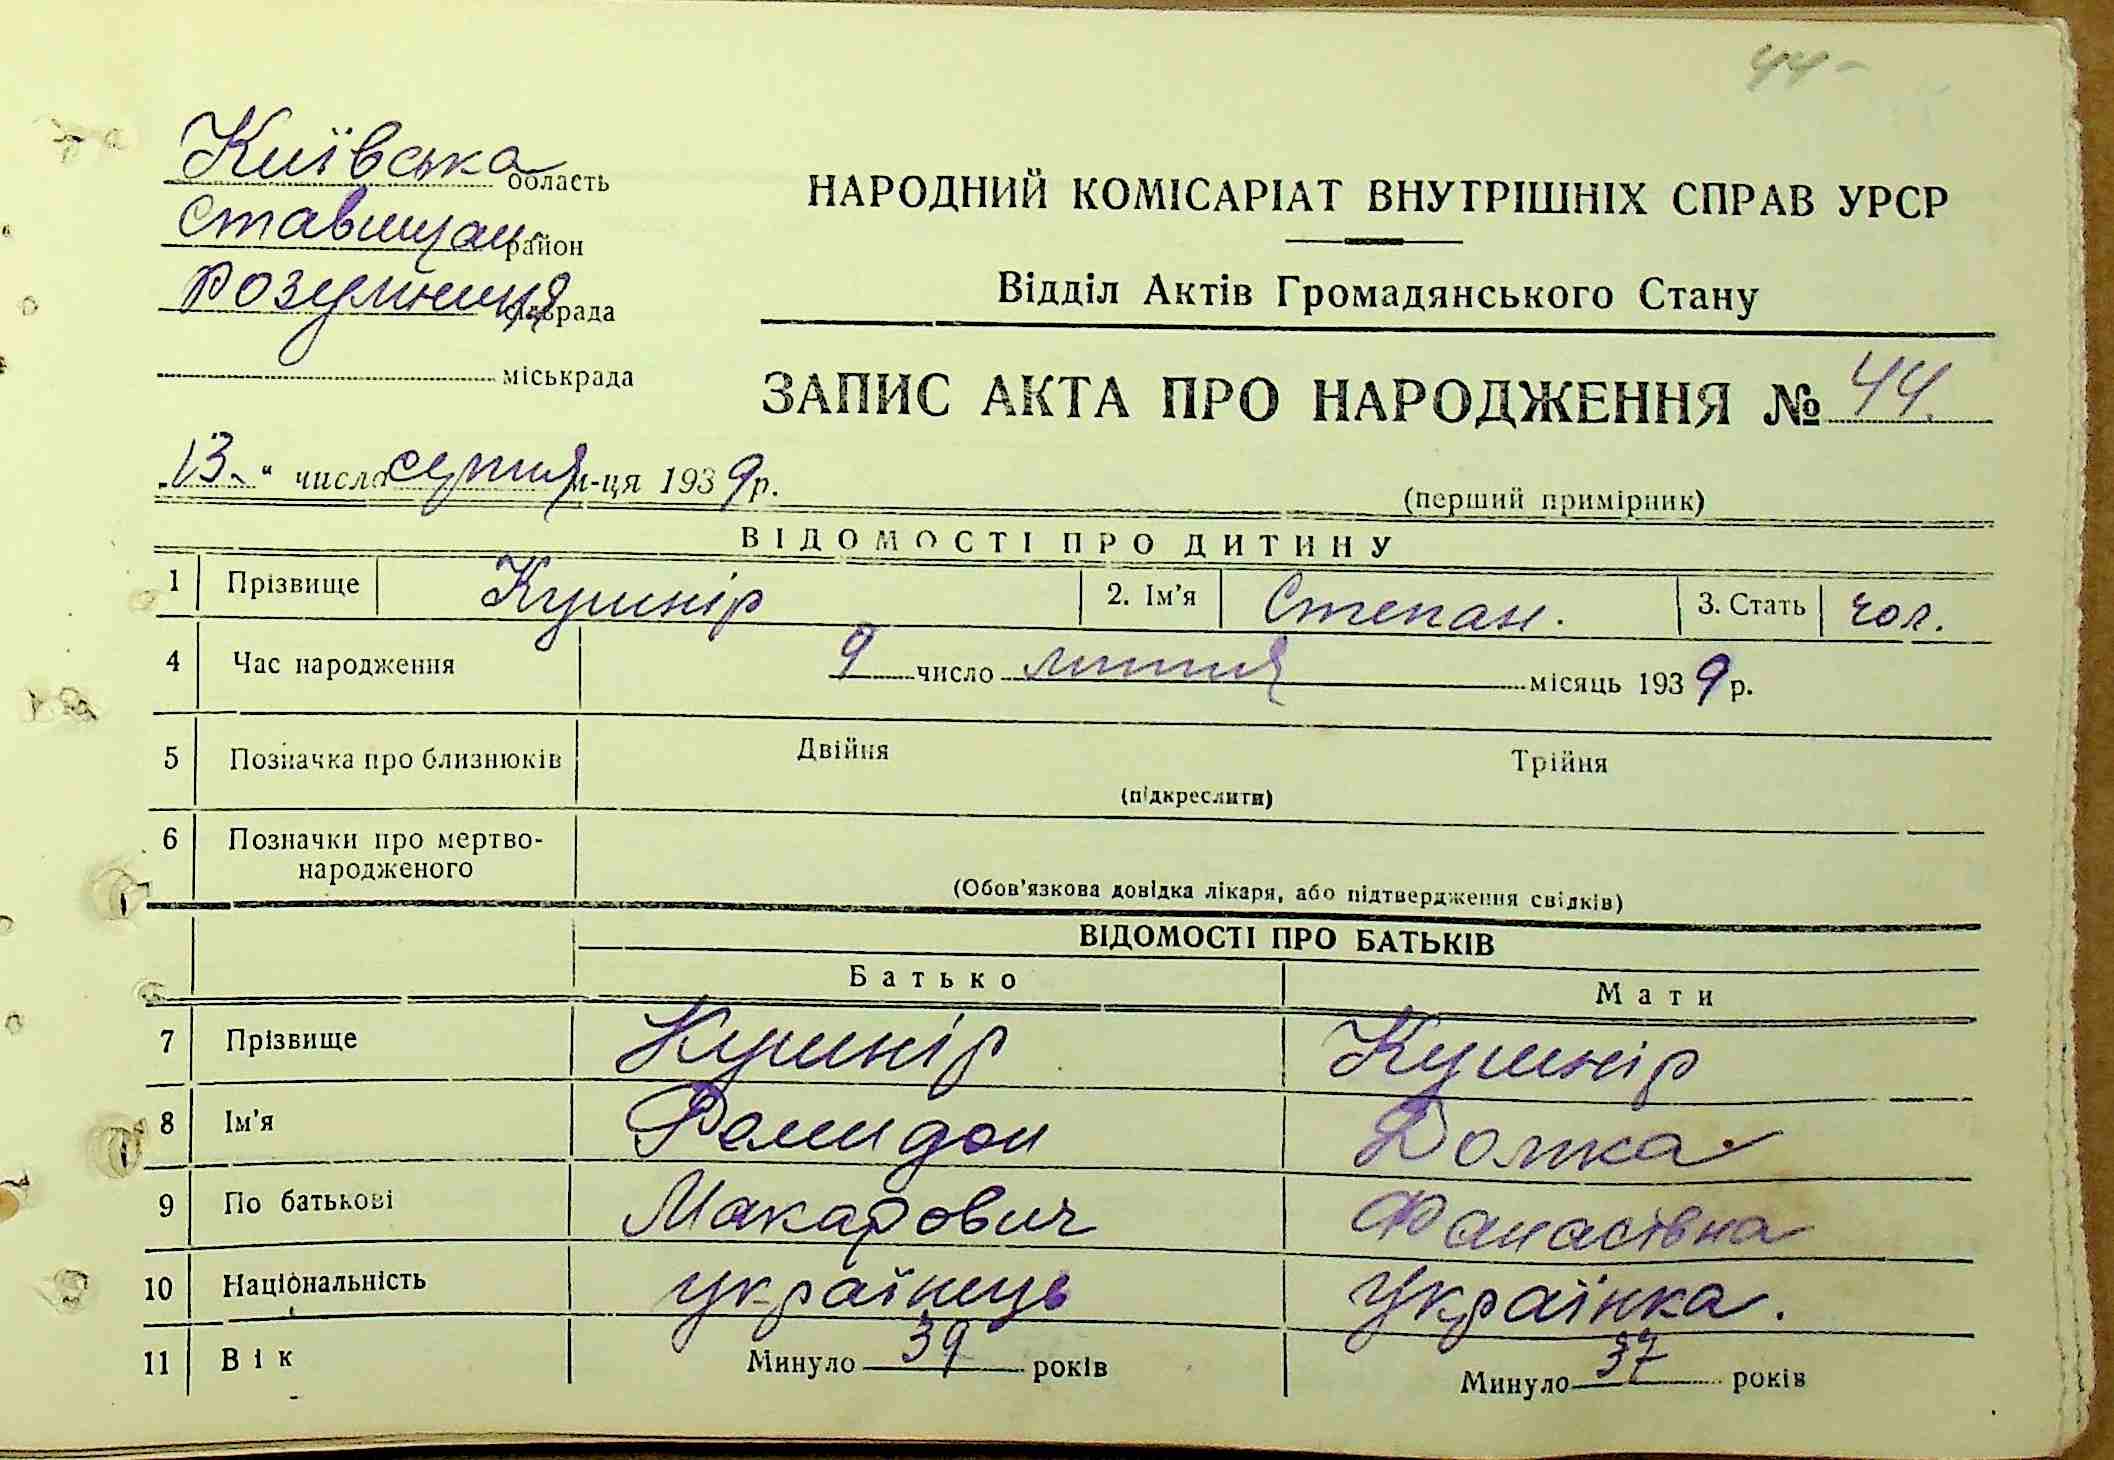 44-
Київська область
Ставищан. район
Розумниця сільрада
міськрада
НАРОДНИЙ КОМІСАРІАТ ВНУТРІШНІХ СПРАВ УРСР
Відділ Актів Громадянського Стану
ЗАПИС АКТА ПРО НАРОДЖЕННЯ № 44.
„13.“ число серпня м-ця 1939 р.
(перший примірник)
ВІДОМОСТІ ПРО ДИТИНУ
1 Прізвище Кушнір 2. Ім'я Степан. 3. Стать чол.
4 Час народження 9 число липня місяць 1939 р.
5 Позначка про близнюків Двійня Трійня
(підкреслити)
6 Позначки про мертво-
народженого
(Обов'язкова довідка лікаря, або підтвердження свідків)
ВІДОМОСТІ ПРО БАТЬКІВ
Батько Мати
7 Прізвище Кушнір Кушнір
8 Ім'я
9 По батькові Макарович Фанасівна
10 Національність українець Українка.
11 Вік Минуло 39 років Минуло 37 років